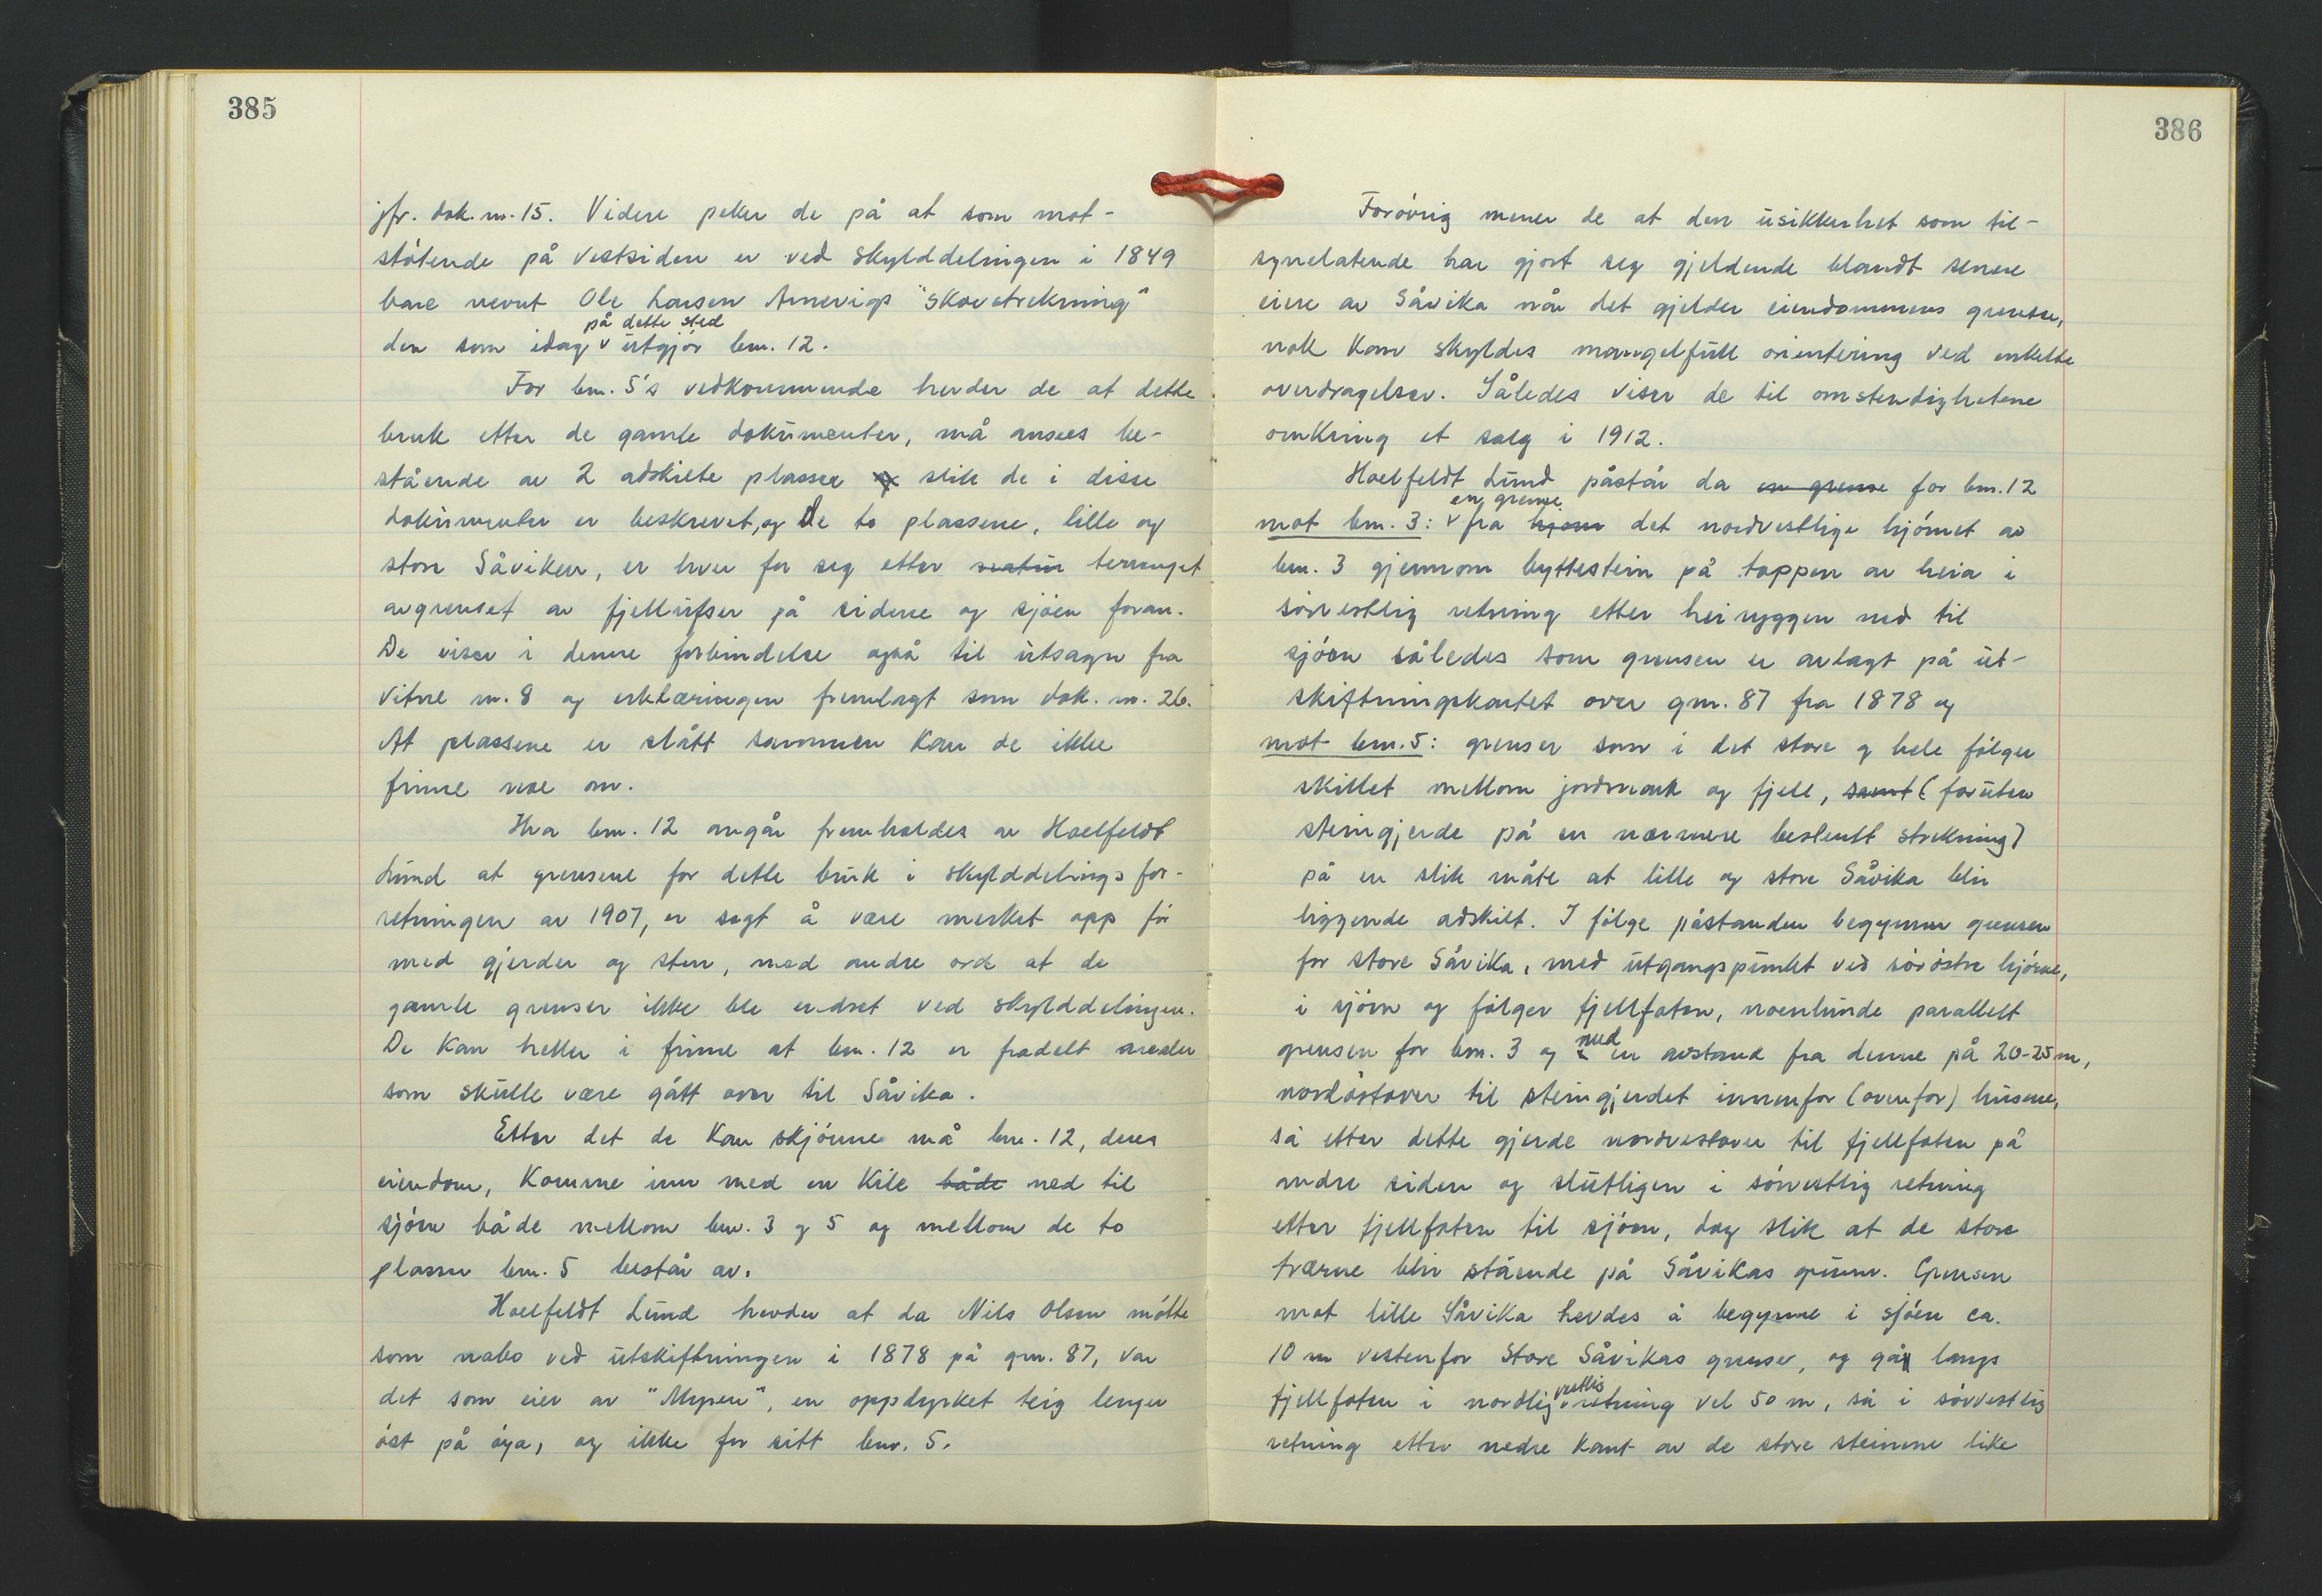 385
jfr. dok. nr. 15. Videre peker de på at som mot-
støtende på vestsiden er ved skylddelingen i 1849
bare nevnt Ole Larsen Arnevigs "skovstrekning"
på dette sted
den som idag v utgjør bnr. 12.
For bnr. 5's vedkommende hevder de at dette
bruk etter de gamle dokumenter, må ansees be-
stående av 2 adskilte plasser slik de i disse
dokumenter er beskrevet, og De to plassene, lille og
store Såviken, er hver for seg etter terrenget
avgrenset av fjellufser på sidene og sjøen foran.
De viser i denne forbindelse også til utsagn fra
vitne nr. 8 og erklæringen fremlagt som dok. nr. 26.
At plassene er slått sammen kan de ikke
finne noe om.
Hva bnr. 12 angår fremholdes av Hoelfeldt
Lund at grensene for dette bruk i skylddelingsfor-
retningen av 1907, er sagt å være merket opp før
med gjerder og sten, med andre ord at de
gamle grenser ikke ble endret ved skylddelingen.
De kan heller i finne at bnr. 12 er fradelt arealer
som skulle være gått over til Såvika.
Etter det de kan skjønne må bnr. 12, deres
eiendom, komme inn med en kile både ned til
sjøen både mellom bnr. 3 og 5 og mellom de to
plasser bnr. 5 består av.
Hoelfeldt Lund hevder at da Nils Olsen møtte
som nabo ved utskiftningen i 1878 på gnr. 87, var
det som eier av "Myren", en oppdyrket teig lenger
øst på øya, og ikke for sitt bnr. 5.
386
Forøvrig mener de at den usikkerhet som til-
synelatende har gjort seg gjeldende blandt senere
eiere av Såvika når det gjelder eiendommens grenser,
nok kan skyldes mangelfull orientering ved enkelte
overdragelser. Således viser de til omstendighetene
omkring et salg i 1912.
Hoelfeldt Lund påstår da en grense for bnr. 12
en grense
mot bnr. 3: v fra det nordvestlige hjørnet av
bnr. 3 gjennom byttestein på toppen av heia i
sørvestlig retning etter heiryggen ned til
sjøen således som grensen er avlagt på ut-
skiftningskartet over gnr. 87 fra 1878 og
mot bnr. 5: grenser som i det store og hele følger
skillet mellom jordmark og fjell, samt (foruten
steingjerde på en nærmere bestemt strekning)
på en slik måte at lille og store Såvika blir
liggende adskilt. I følge påstanden begynner grensen
for store Såvika, med utgangspunkt ved sørøstre hjørne,
i sjøen og følger fjellfoten, noenlunde parallelt
med
grensen for bnr. 3 og en avstand fra denne på 20-25 m,
nordøstover til steingjerdet innenfor (ovenfor) husene,
så etter dette gjerde nordvestover til fjellfoten på
andre siden og sluttligen i sørvestlig retning
etter fjellfoten til sjøen, dog slik at de store
trærne blir stående på Såvikas grunn. Grensen
mot lille Såvika hevdes å begynne i sjøen ca.
10 m vestenfor Store Såvikas grenser, og går langs
vestlig
fjellfoten i nordlig v retning vel 50 m, så i sørvestlig
retning etter nedre kant av de store steinene like